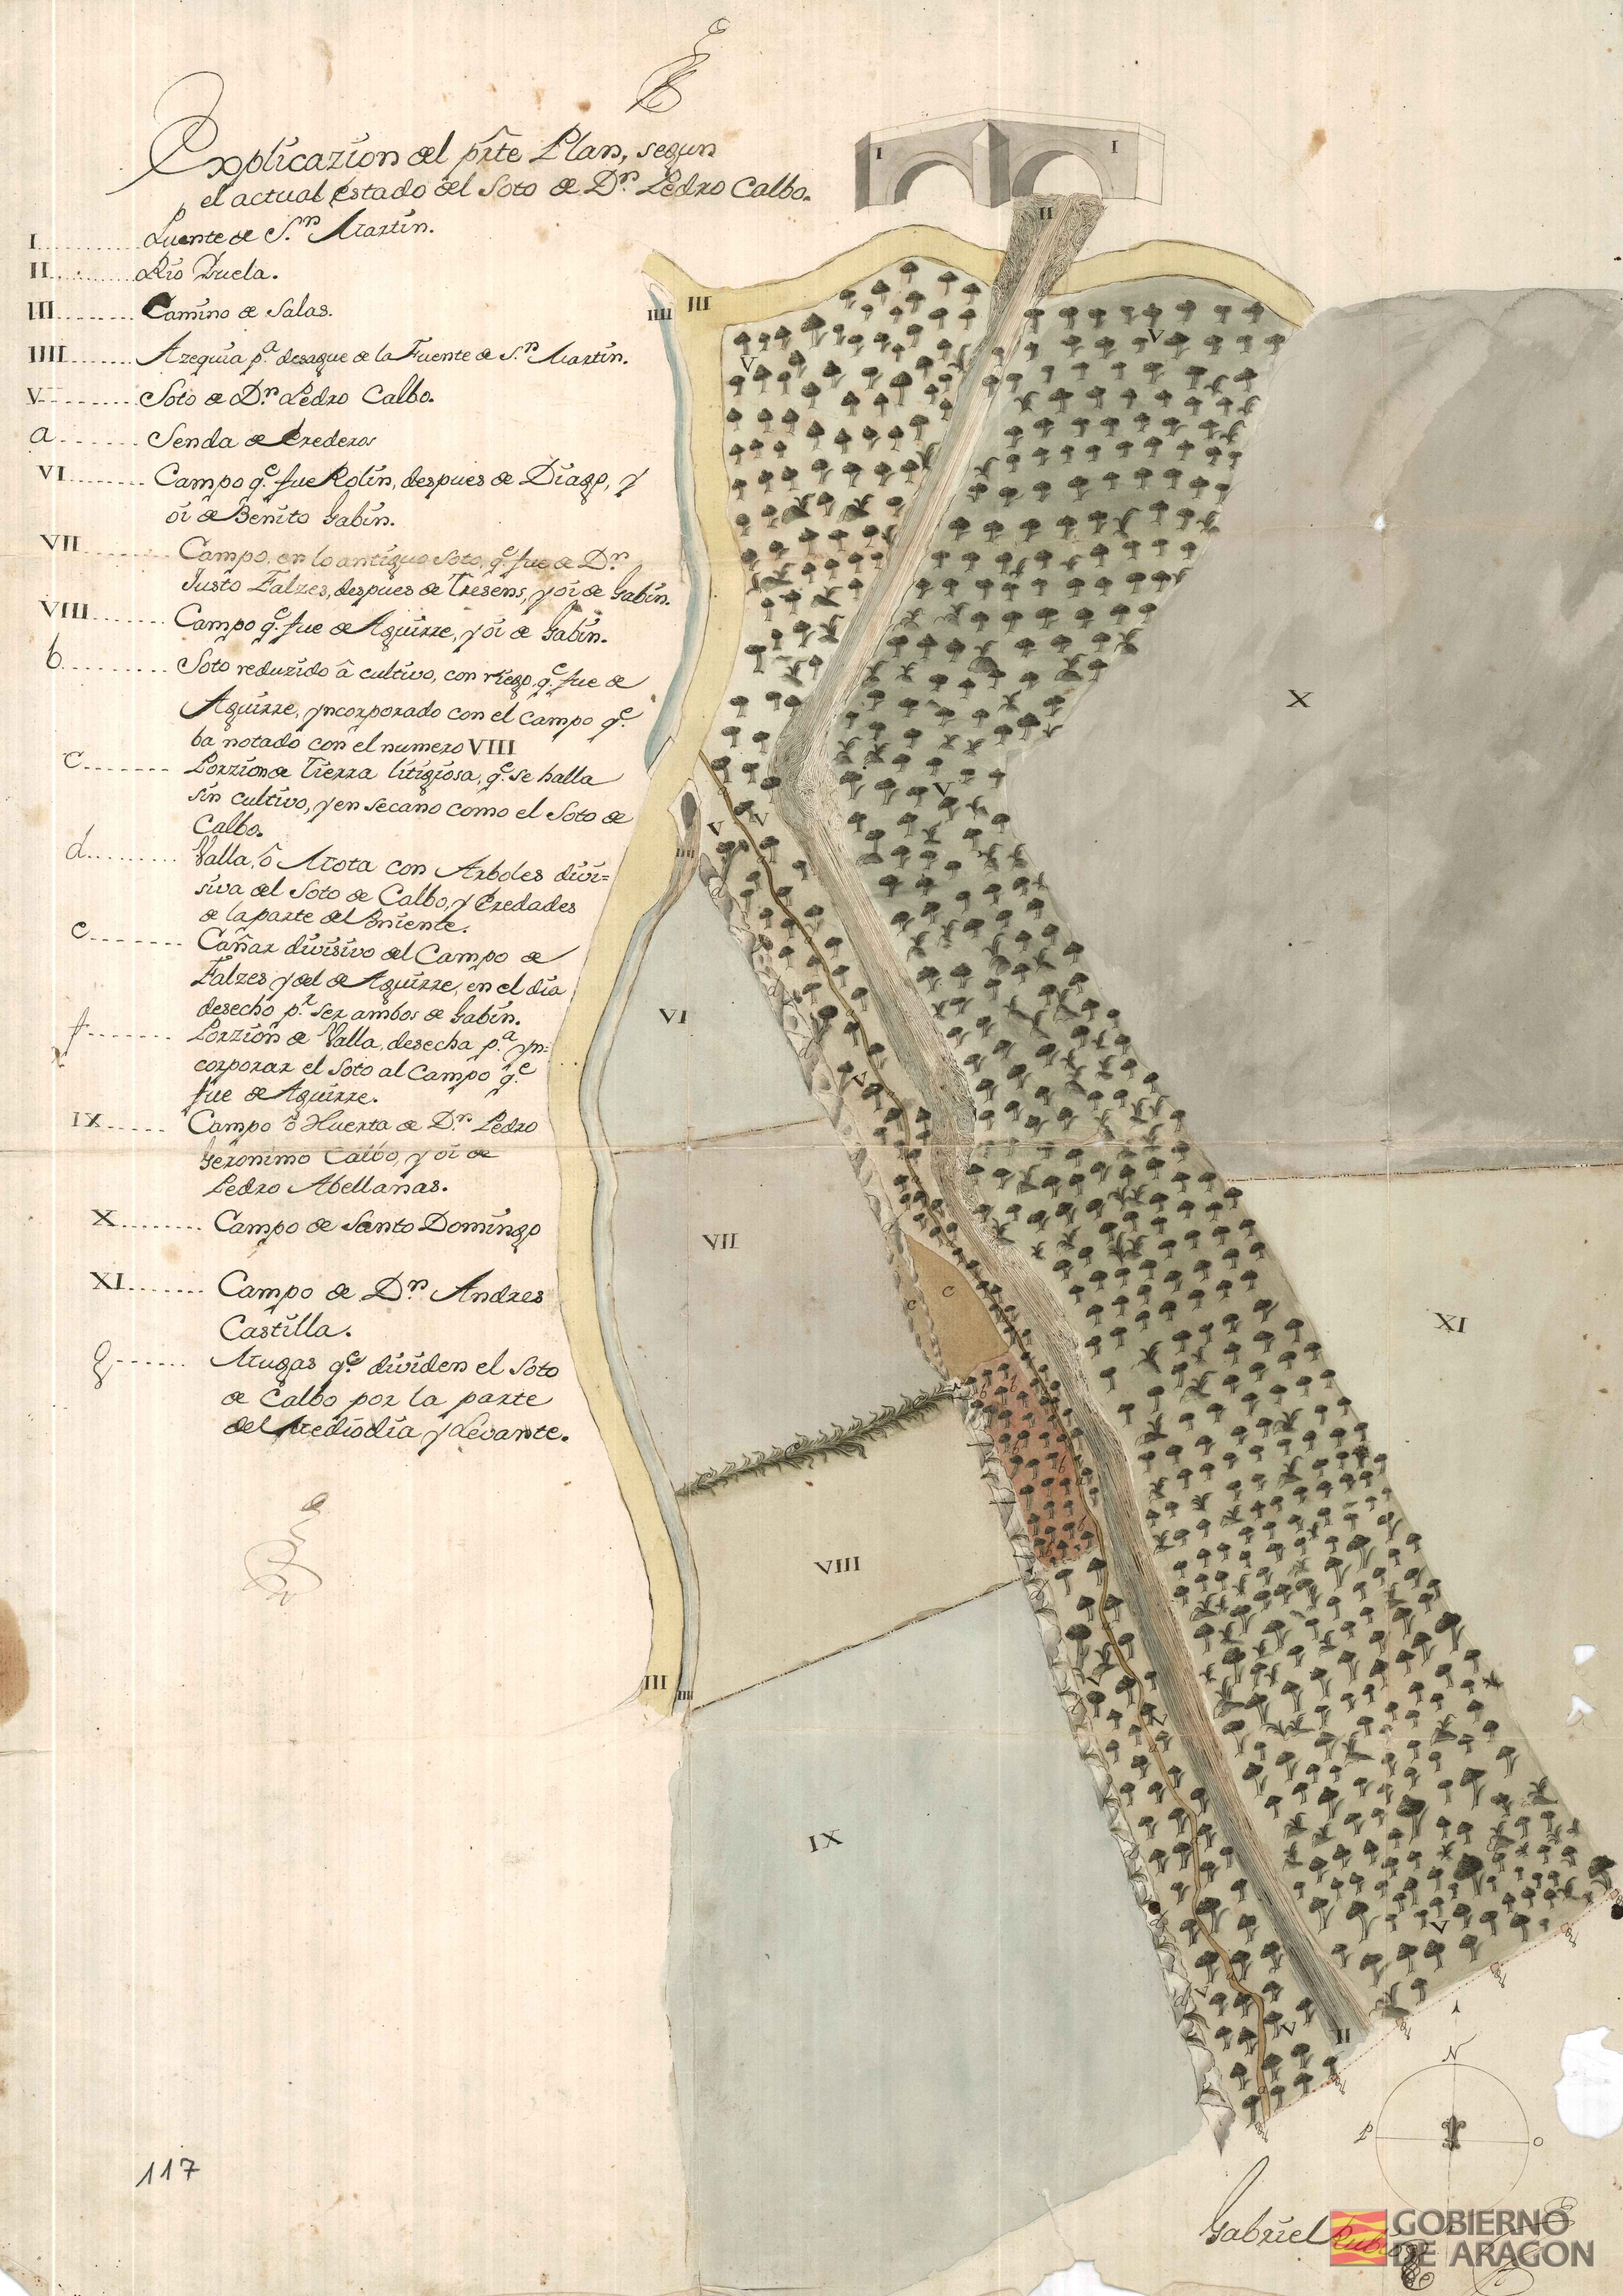 Explicazion del prîte Plan, segun
el actual estado del Soto de Dn. Pedro Calbo.
I.......... Puente de Sn. Martin.
II.......... Rio Yuela.
III.......... Camino de Salas.
IIII.......... Azequia pa. desague de la Fuente de Sn. Martin.
V.......... Soto de Dn. Pedro Calbo.
a.......... Senda de Erederos
VI.......... Campo qe. fue Rolin, despues de Diago, y
oi de Benito Gabin.
VII.......... Campo, en lo antiguo Soto, qe. fue de Dn.
Justo Falzes, despues de Tresens, y oi de Gabin.
VIII.......... Campo qe. fue de Aguirre, y oi de Gabin.
b.......... Soto reduzido â cultivo, con riego, qe. fue de
Aguirre, yncorporado con el Campo qe.
ba notado con el numero VIII
c.......... Porzion de Tierra litigiosa, qe. se halla
sin cultivo, y en secano como el Soto de
Calbo.
d.......... Valla, ô Mota con Arboles divi=
siva del Soto de Calbo, y Eredades
de la parte del Poniente.
e.......... Cañar divisivo del Campo de
Falzes y del de Aguirre, en el dia
desecho pr. ser ambos de Gabin.
f.......... Porzion de Valla, desecha pa. yn=
corporar el Soto al Campo qe.
fue de Aguirre.
IX.......... Campo ô Huerta de Dn. Pedro
Geronimo Calbo, y oi de
Pedro Abellanas.
X.......... Campo de Santo Domingo
XI.......... Campo de Dn. Andres
Castilla.
g.......... Mugas qe. dividen el Soto
de Calbo por la parte
del Mediodia y Levante.
I
I
II
III
IIII
V
V
X
V
V
V
IIII
d
VI
V
VII
c
XI
b
b
VIII
III
IIII
V
IX
V
V
V
II
g
g
g
g
g
N
P
O
117
Gabriel Rubio
GOBIERNO
DE ARAGON